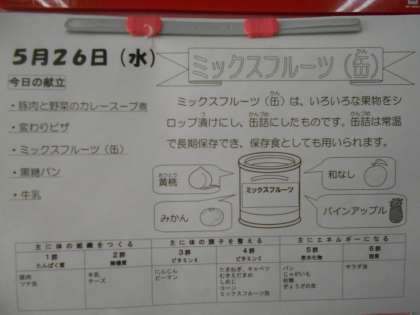 5月26日（水）
今日の献立
・豚肉と野菜のカレースープ煮
・変わりピザ
・ミックスフルーツ（缶）
・黒糖パン
・牛乳
ミックスフルーツ（缶）
ミックスフルーツ（缶）は、いろいろな果物をシ
ロップ漬けにし、缶詰にしたものです。缶詰は常温
で長期保存でき、保存食としても用いられます。
黄桃
和なし
ミックスフルーツ
みかん
パインアップル
主に体の組織をつくる
主に体の調子を整える
主にエネルギーになる
1群 2群 3群 4群 5群 6群
たんぱく質 無機質 ビタミンA ビタミンC 炭水化物 脂質
豚肉
ツナ缶
牛乳
チーズ
にんじん
ピーマン
たまねぎ、キャベツ
むきえだまめ
しめじ
コーン
ミックスフルーツ缶
パン
じゃがいも
砂糖
ぎょうざの皮
サラダ油